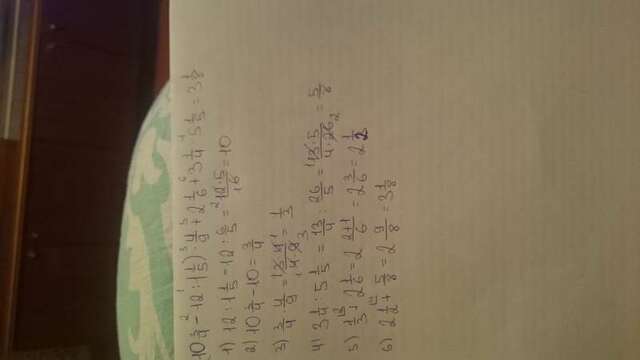 (10 3/4 - 12 : 1 1/5) · 4/9 + 2 1/6 + 3 1/4 : 5 1/5 = 3 1/8
1) 12 : 1 1/5 = 12 : 6/5 = 12·5/6 = 10
2) 10 3/4 - 10 = 3/4
3) 3/4 · 4/9 = 3·4/4·9 = 1/3
4) 3 1/4 : 5 1/5 = 13/4 : 26/5 = 13·5/4·26 = 5/8
5) 1/3 + 2 1/6 = 2 2+1/6 = 2 3/6 = 2 1/2
6) 2 1/2 + 5/8 = 2 9/8 = 3 1/8